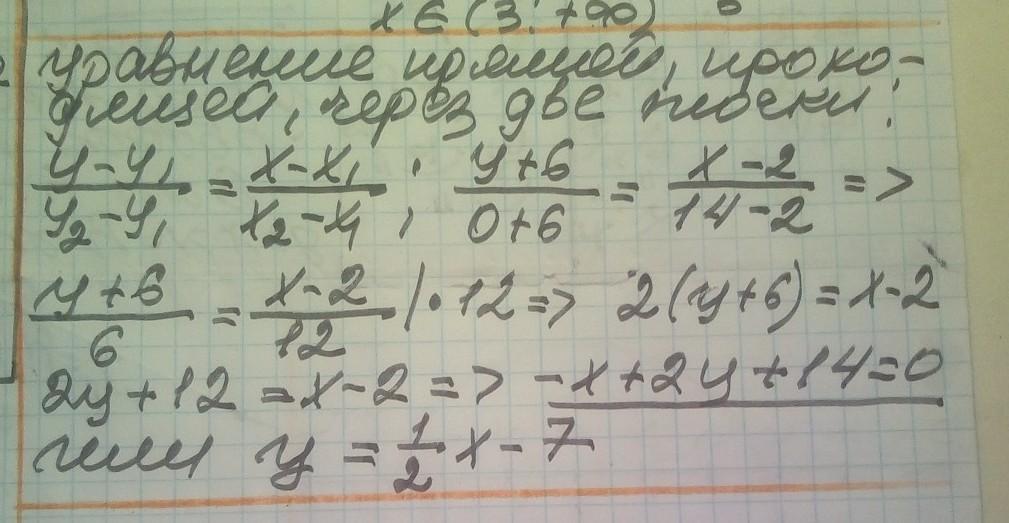 x ∈ (3; +∞)
уравнение прямой, прохо-
дящей, через две точки:
(y - y₁)/(y₂ - y₁) = (x - x₁)/(x₂ - x₁) ; (y + 6)/(0 + 6) = (x - 2)/(14 - 2) =>
(y + 6)/6 = (x - 2)/12 | · 12 => 2(y + 6) = x - 2
2y + 12 = x - 2 => -x + 2y + 14 = 0
или y = 1/2 x - 7